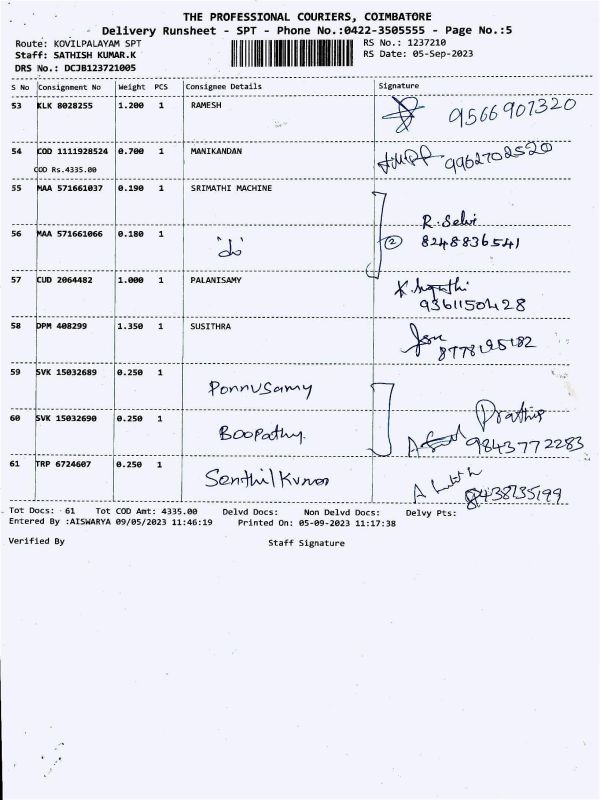 THE PROFESSIONAL COURIERS, COIMBATORE
Delivery Runsheet - SPT - Phone No.:0422-3505555 - Page No.:5
Route: KOVILPALAYAM SPT RS No.: 1237210
Staff: SATHISH KUMAR.K RS Date: 05-Sep-2023
DRS No.: DCJB123721005
S No Consignment No Weight PCS Consignee Details Signature
53 KLK 8028255 1.200 1 RAMESH 9566907320
54 COD 1111928524 0.700 1 MANIKANDAN 9962702520
COD Rs.4335.00
55 MAA 571661037 0.190 1 SRIMATHI MACHINE
R. Selvi
56 MAA 571661066 0.180 1 "do" 2 8248836541
57 CUD 2064482 1.000 1 PALANISAMY
9361150428
58 DPM 408299 1.350 1 SUSITHRA
8778195182
59 SVK 15032689 0.250 1 Ponnusamy
60 SVK 15032690 0.250 1 Boopathy Prathip
9843772283
61 TRP 6724607 0.250 1 Senthilkumar
Tot Docs: 61 Tot COD Amt: 4335.00 Delvd Docs: Non Delvd Docs: Delvy Pts:
Entered By :AISWARYA 09/05/2023 11:46:19 Printed On: 05-09-2023 11:17:38
Verified By Staff Signature